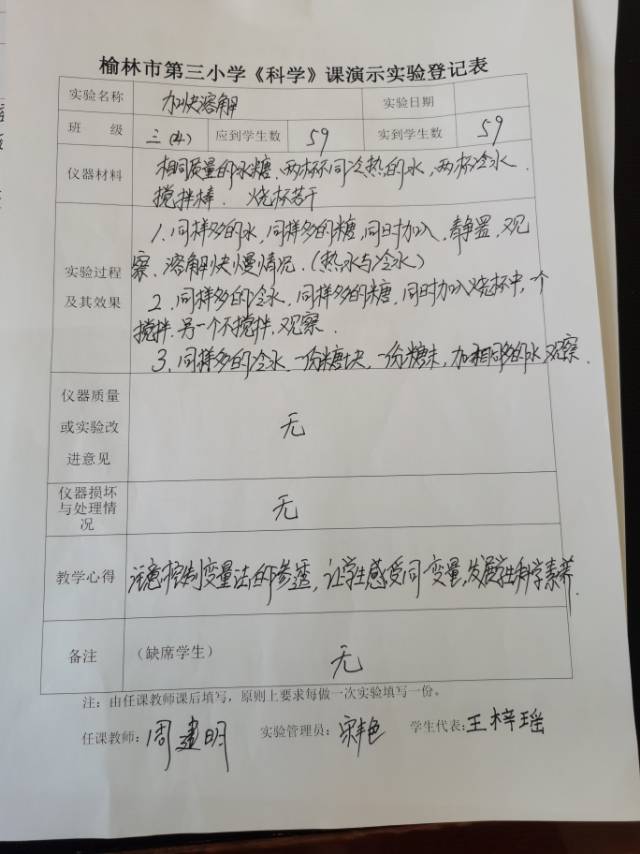 榆林市第三小学《科学》课演示实验登记表
实验名称 加快溶解 实验日期
班 级 三(4) 应到学生数 59 实到学生数 59
仪器材料 相同质量的冰糖、两杯不同冷热的水,两杯冷水、
搅拌棒、烧杯若干
实验过程及其效果
1、同样多的水,同样多的糖,同时加入、静置、观
察、溶解快慢情况.(热水与冷水)
2、同样多的冷水、同样多的糖、同时加入烧杯中,一个
搅拌、另一个不搅拌、观察、
3、同样多的冷水、一份糖块、一份糖末,加相同多的水,观察.
仪器质量
或实验改
进意见
无
仪器损坏
与处理情
况
无
教学心得 注意控制变量法的渗透,让学生感受同变量,发展学生科学素养.
备注 (缺席学生) 无
注:由任课教师课后填写,原则上要求每做一次实验填写一份。
任课教师:周建明 实验管理员: 学生代表:王梓瑶